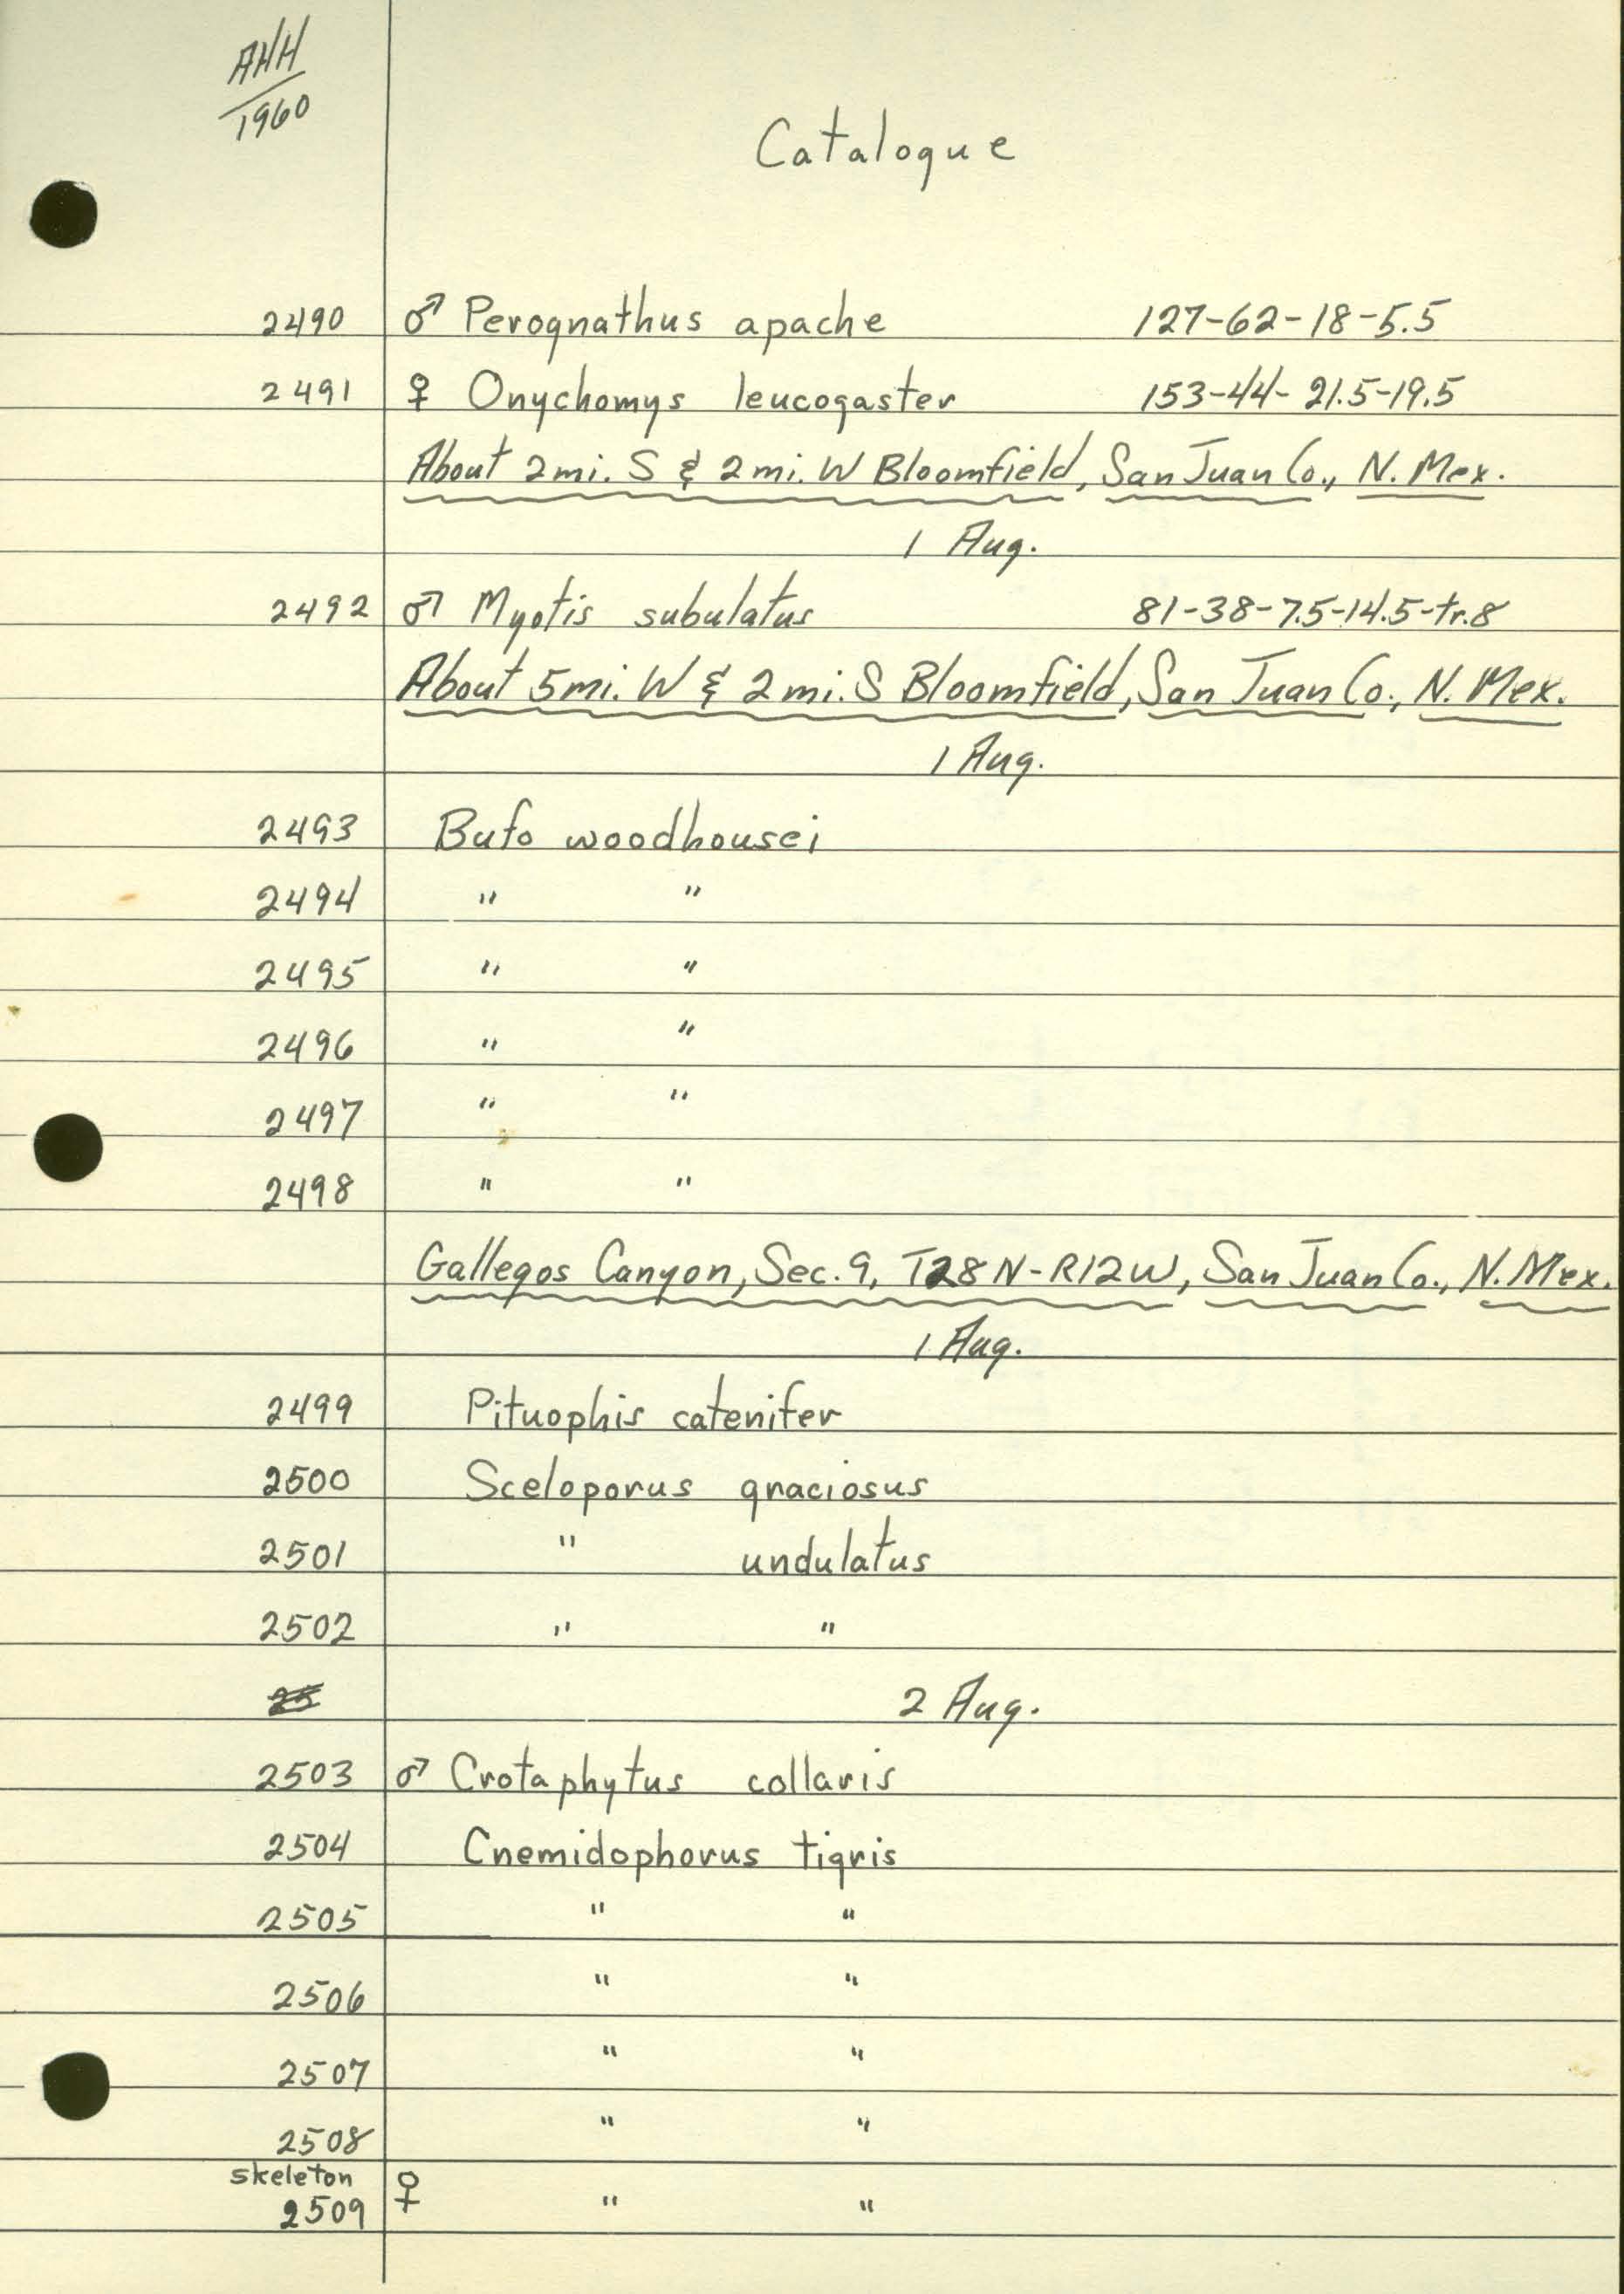 AHH
1960
Catalogue
2490 ♂ Perognathus apache 127-62-18-5.5
2491 ♀ Onychomys leucogaster 153-44-21.5-19.5
About 2mi. S & 2mi. W Bloomfield, San Juan Co., N. Mex.
1 Aug.
2492 ♂ Myotis subulatus 81-38-7.5-14.5-tr.8
About 5mi. W & 2mi. S Bloomfield, San Juan Co., N. Mex.
1 Aug.
2493 Bufo woodhousei
2494 " "
2495 " "
2496 " "
2497 " "
2498 " "
Gallegos Canyon, Sec. 9, T28N-R12W, San Juan Co., N. Mex.
1 Aug.
2499 Pituophis catenifer
2500 Sceloporus graciosus
2501 " undulatus
2502 " "
25 2 Aug.
2503 ♂ Crotaphytus collaris
2504 Cnemidophorus tigris
2505 " "
2506 " "
2507 " "
2508 " "
skeleton
2509 ♀ " "